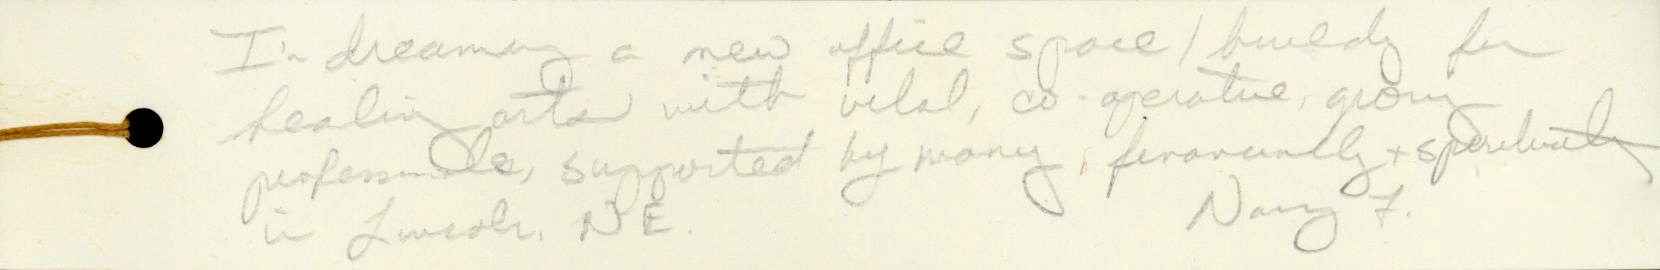 I'm dreaming a new office space / building for
healing arts with vital, co-operative, growing
professionals, supported by many, financially + spiritually
in Lincoln, NE.
Nancy F.